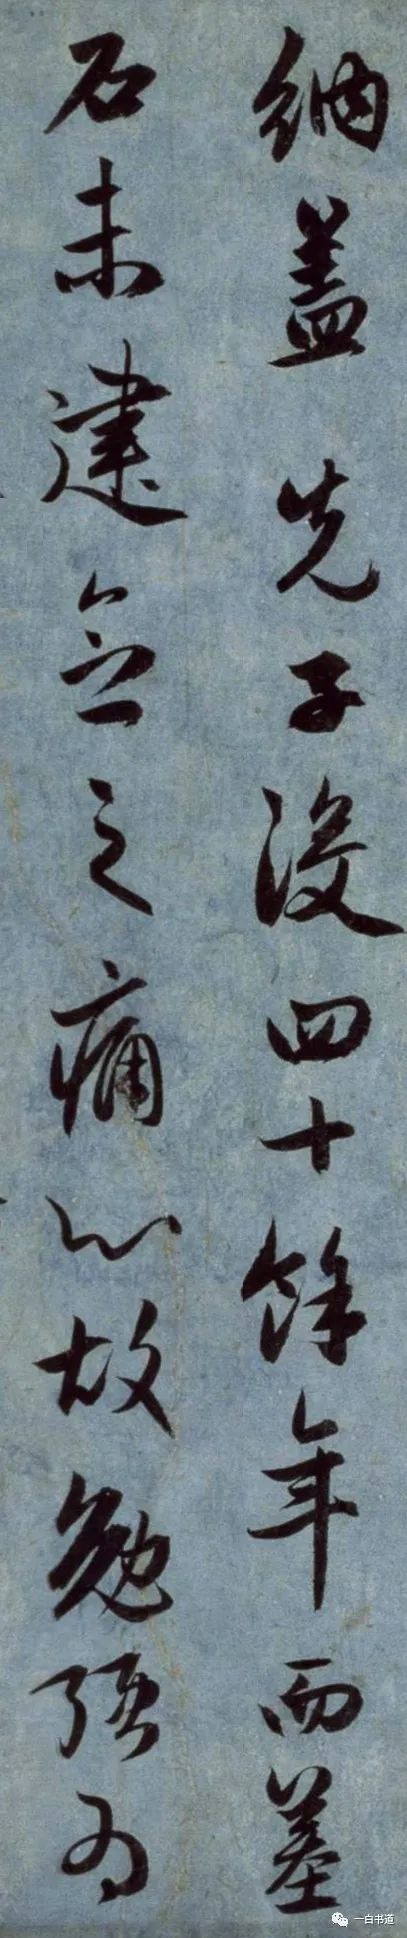 納蓋先子没四十餘年而墓
石未建念之痛心故勉强为
一白书道